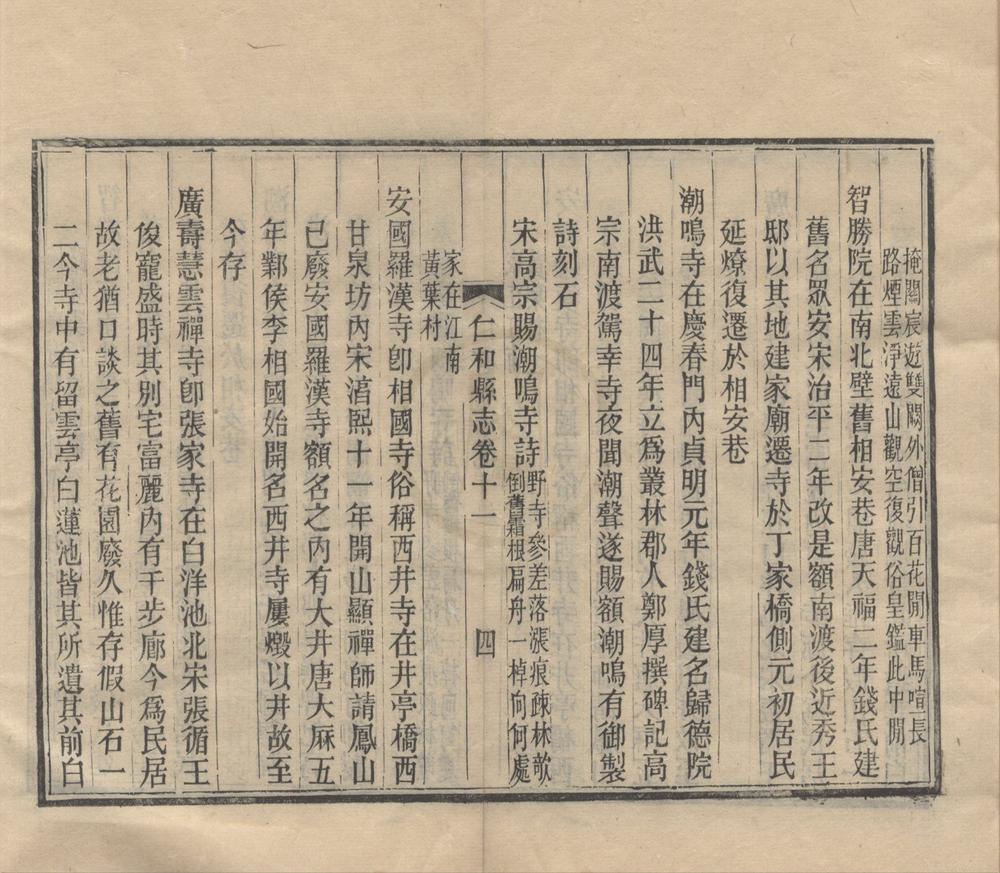 掩關宸遊雙闕外僧引百花閒車馬喧長
路煙雲淨遠山觀空復觀俗皇鑑此中閒
智勝院在南北壁舊相安巷唐天福二年錢氏建
舊名眾安宋治平二年改是額南渡後近秀王
邸以其地建家廟遷寺於丁家橋側元初居民
延燎復遷於相安巷
潮鳴寺在慶春門內貞明元年錢氏建名歸德院
洪武二十四年立為叢林郡人鄭厚撰碑記高
宗南渡駕幸寺夜聞潮聲遂賜額潮鳴有御製
詩刻石
宋高宗賜潮鳴寺詩
野寺參差落漲痕疎林欹
倒舊霜根扁舟一棹向何處
仁和縣志卷十一
四
家在江南
黃葉村
安國羅漢寺卽相國寺俗稱西井寺在井亭橋西
甘泉坊內宋湻熙十一年開山顯禪師請鳳山
已廢安國羅漢寺額名之內有大井唐大麻五
年鄴侯李相國始開名西井寺屢燬以井故至
今存
廣壽慧雲禪寺卽張家寺在白洋池北宋張循王
俊寵盛時其別宅富麗內有千步廊今為民居
故老猶口談之舊有花園廢久惟存假山石一
二今寺中有留雲亭白蓮池皆其所遺其前白